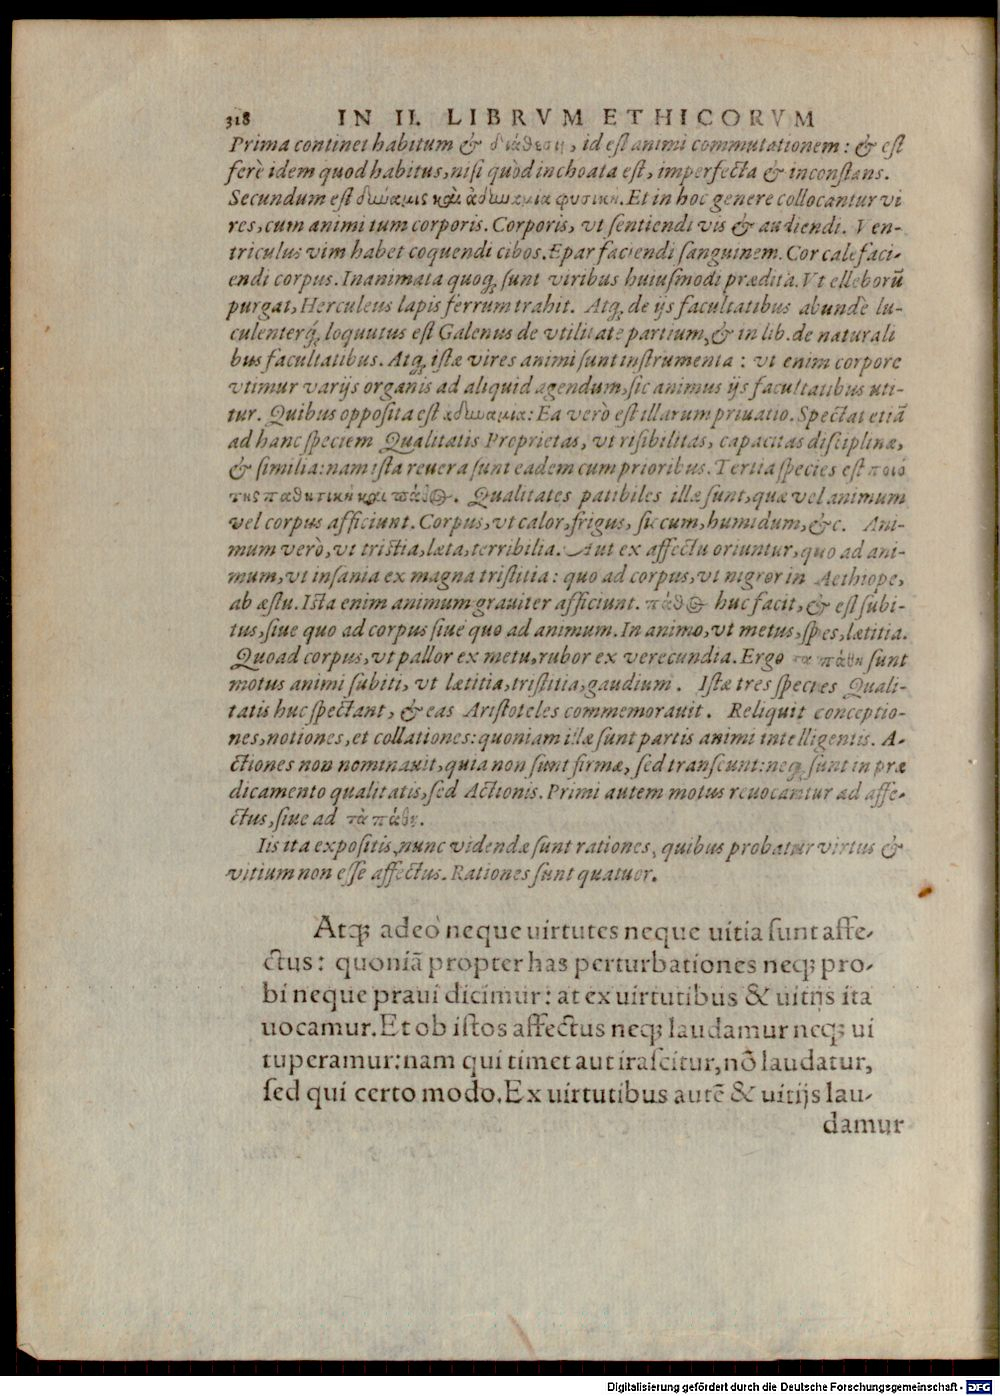 318 IN II. LIBRVM ETHICORVM
Prima continet habitum & διάθεσιν, id est animi commutationem: & est
ferè idem quod habitus, nisi quòd inchoata est, imperfecta & inconstans.
Secundum est δύναμις καὶ ἀδυναμία φυσική. Et in hoc genere collocantur vi
res, cum animi tum corporis. Corporis, vt sentiendi vis & audiendi. Ven-
triculus vim habet coquendi cibos. Epar faciendi sanguinem. Cor calefaci-
endi corpus. Inanimata quoq; sunt viribus huiusmodi prædita. Vt elleborũ
purgat, Herculeus lapis ferrum trahit. Atq; de ijs facultatibus abundè lu-
culenterq́; loquutus est Galenus de vtilitate partium, & in lib. de naturali
bus facultatibus. Atq; istæ vires animi sunt instrumenta: vt enim corpore
vtimur varijs organis ad aliquid agendum, sic animus ijs facultatibus uti-
tur. Quibus opposita est ἀδυναμία: Ea verò est illarum priuatio. Spectat etiã
ad hanc speciem Qualitatis Proprietas, vt risibilitas, capacitas disciplinæ,
& similia: nam ista reuera sunt eadem cum prioribus. Tertia species est ποιό
της παθητικὴ καὶ πάθος. Qualitates patibiles illæ sunt, quæ vel animum
vel corpus afficiunt. Corpus, vt calor, frigus, siccum, humidum, &c. Ani-
mum verò, vt tristia, læta, terribilia. Aut ex affectu oriuntur, quo ad ani-
mum, vt insania ex magna tristitia: quo ad corpus, vt nigror in Aethiope,
ab æstu. Ista enim animum grauiter afficiunt. πάθος huc facit, & est subi-
tus, siue quo ad corpus siue quo ad animum. In animo, vt metus, spes, lætitia.
Quoad corpus, vt pallor ex metu, rubor ex verecundia. Ergo τὰ πάθη sunt
motus animi subiti, vt lætitia, tristitia, gaudium. Istæ tres species Quali-
tatis huc spectant, & eas Aristoteles commemorauit. Reliquit conceptio-
nes, notiones, et collationes: quoniam illæ sunt partis animi intelligentis. A-
ctiones non nominauit, quia non sunt firmæ, sed transeunt: neq; sunt in præ
dicamento qualitatis, sed Actionis. Primi autem motus reuocantur ad affe-
ctus, siue ad τὰ πάθη.
Iis ita expositis, nunc videndæ sunt rationes, quibus probatur virtus &
vitium non esse affectus. Rationes sunt quatuor.
Atq; adeò neque uirtutes neque uitia sunt affe-
ctus: quoniã propter has perturbationes neq; pro-
bi neque praui dicimur: at ex uirtutibus & uitijs ita
uocamur. Et ob istos affectus neq; laudamur neq; ui
tuperamur: nam qui timet aut irascitur, nõ laudatur,
sed qui certo modo. Ex uirtutibus autẽ & uitijs lau-
damur
Digitalisierung gefördert durch die Deutsche Forschungsgemeinschaft - DFG